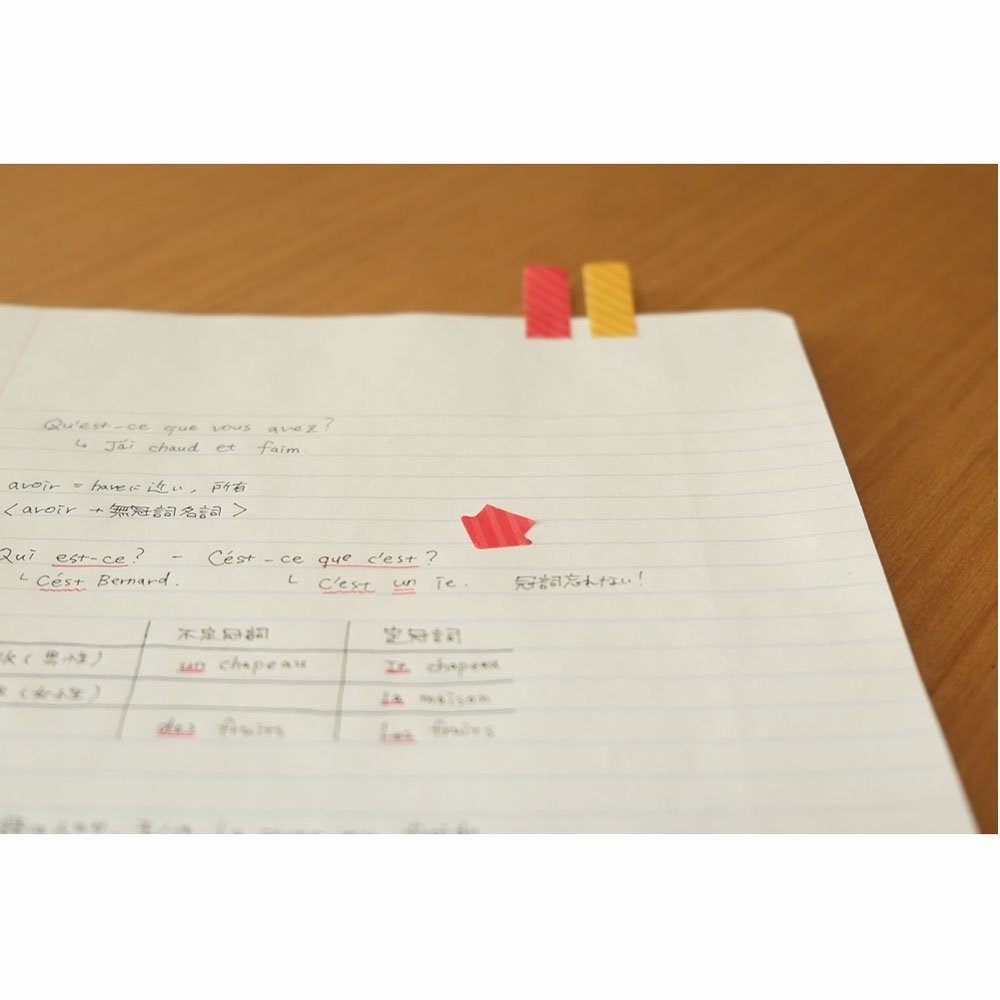 Qu'est-ce que vous avez?
↳ J'ai chaud et faim.
avoir = haveに近い、所有
<avoir + 無冠詞名詞>
Qui est-ce? - Cést-ce que c'est?
└ Cést Bernard. └ C'est un ie. 冠詞忘れない!
不定冠詞 定冠詞
(男小生) un chapeau le chapeau
(女小生) la maison
des fruits les fruits